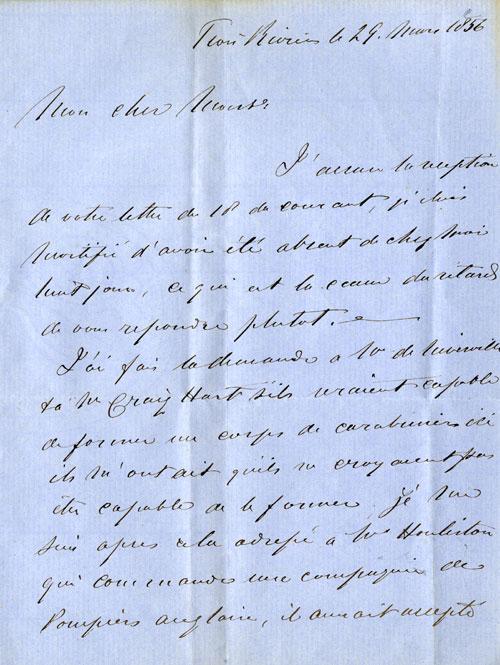 Trois Rivières le 29. Mars 1856
Mon cher Monsr
J'accuse la reception
de votre lettre du 18 du courant, je suis
mortifié d'avoir été absent de chez moi
huit jours, ce qui est la cause du retard
de vous repondre plutot.
J'ai fait la demande à Mr de Niverville
& à Mr Craig Hart s'ils seraient capable
de former un corps de carabiniers ici
ils m'ont dit qu'ils ne croyaient pas
être capable de le former, je me
suis apres cela adressé à Mr Houliston
qui commande une compagnie de
Pompiers anglaise, il aurait accepté